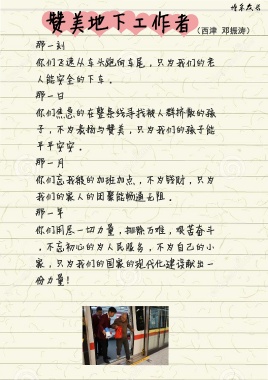 赞美地下工作者（西津 邓振涛）
那一刻
你们飞速从车头跑向车尾，只为我们的老
人能安全的下车。
那一日
你们焦急的在整条线寻找被人群挤散的孩
子，不为表扬与赞美，只为我们的孩子能
平平安安。
那一月
你们忘我般的加班加点，不为钱财，只为
我们的家人的团聚能畅通无阻。
那一年
你们用尽一切力量，排除万难，艰苦奋斗
，不忘初心的为人民服务，不为自己的小
家，只为我们的国家的现代化建设献出一
份力量！